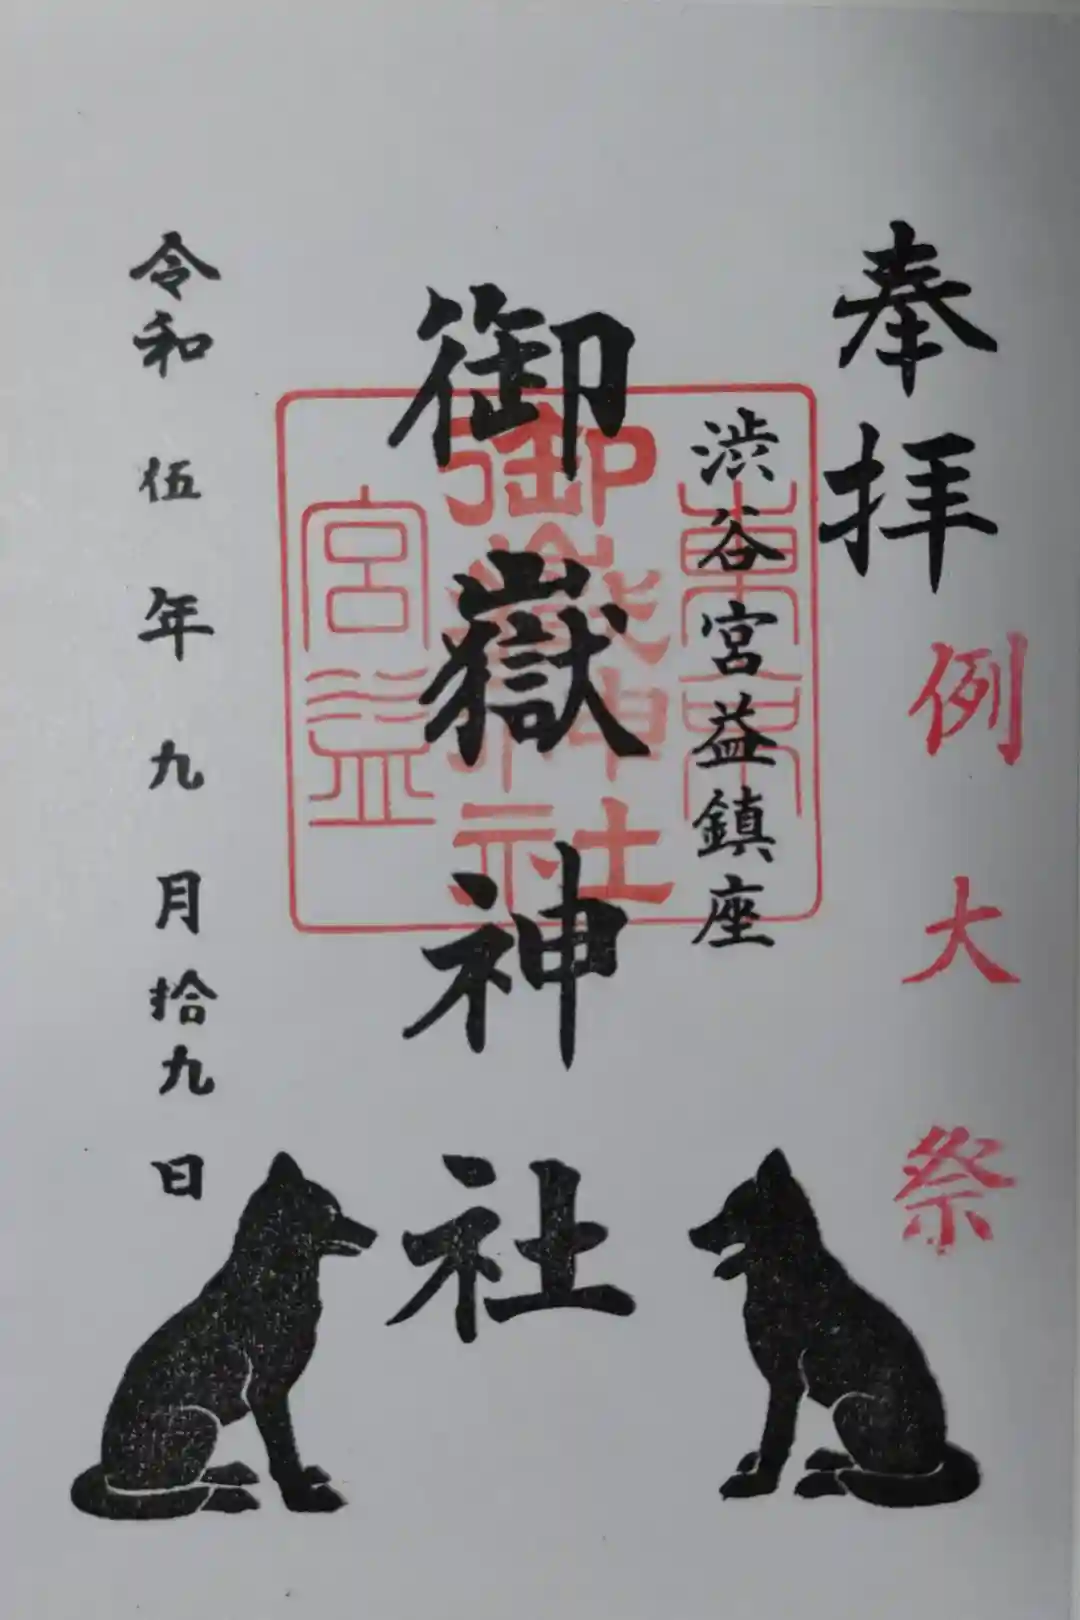 奉拝
例大祭
渋谷宮益鎮座
東京
御嶽神社
宮益
御嶽神社
令和伍年九月拾九日